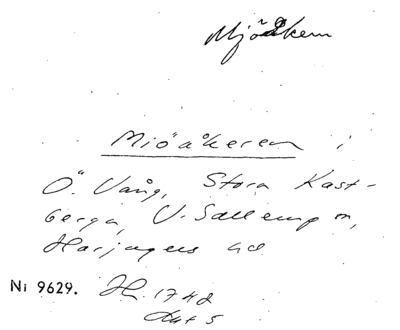 Mjöåkern
Mjöåkeren i
Ö. Vång, Stora Kast-
berga, V. Sallerup sn,
Harjagers hd
Ni 9629. H. 1742
Akt 5